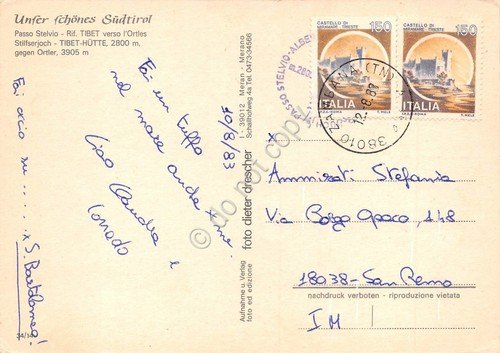 Unser schönes Südtirol
Passo Stelvio - Rif. TIBET verso l'Ortles
Stilfserjoch - TIBET-HÜTTE, 2800 m,
gegen Ortler, 3905 m
10/8/83
Fai un tuffo
nel mare anche x me.
Ciao Claudia e
Corrado
Fai ciao su .... x S. Bartolomeo!
34/14
I - 39012 Meran - Merano
Schafferhofweg 4a Tel 0473-34566
foto dieter drescher
Aufnahme u. Verlag
foto ed edizione
do not copy
CASTELLO DI
MIRAMARE TRIESTE
150
ITALIA
CASTELLO DI
MIRAMARE TRIESTE
150
ITALIA
PASSO STELVIO
38010 (TN)
12.8.83
x
Ammirati Stefania
Via Borgo Opaco, 148
18038 - San Remo
nachdruck verboten - riproduzione vietata
IM